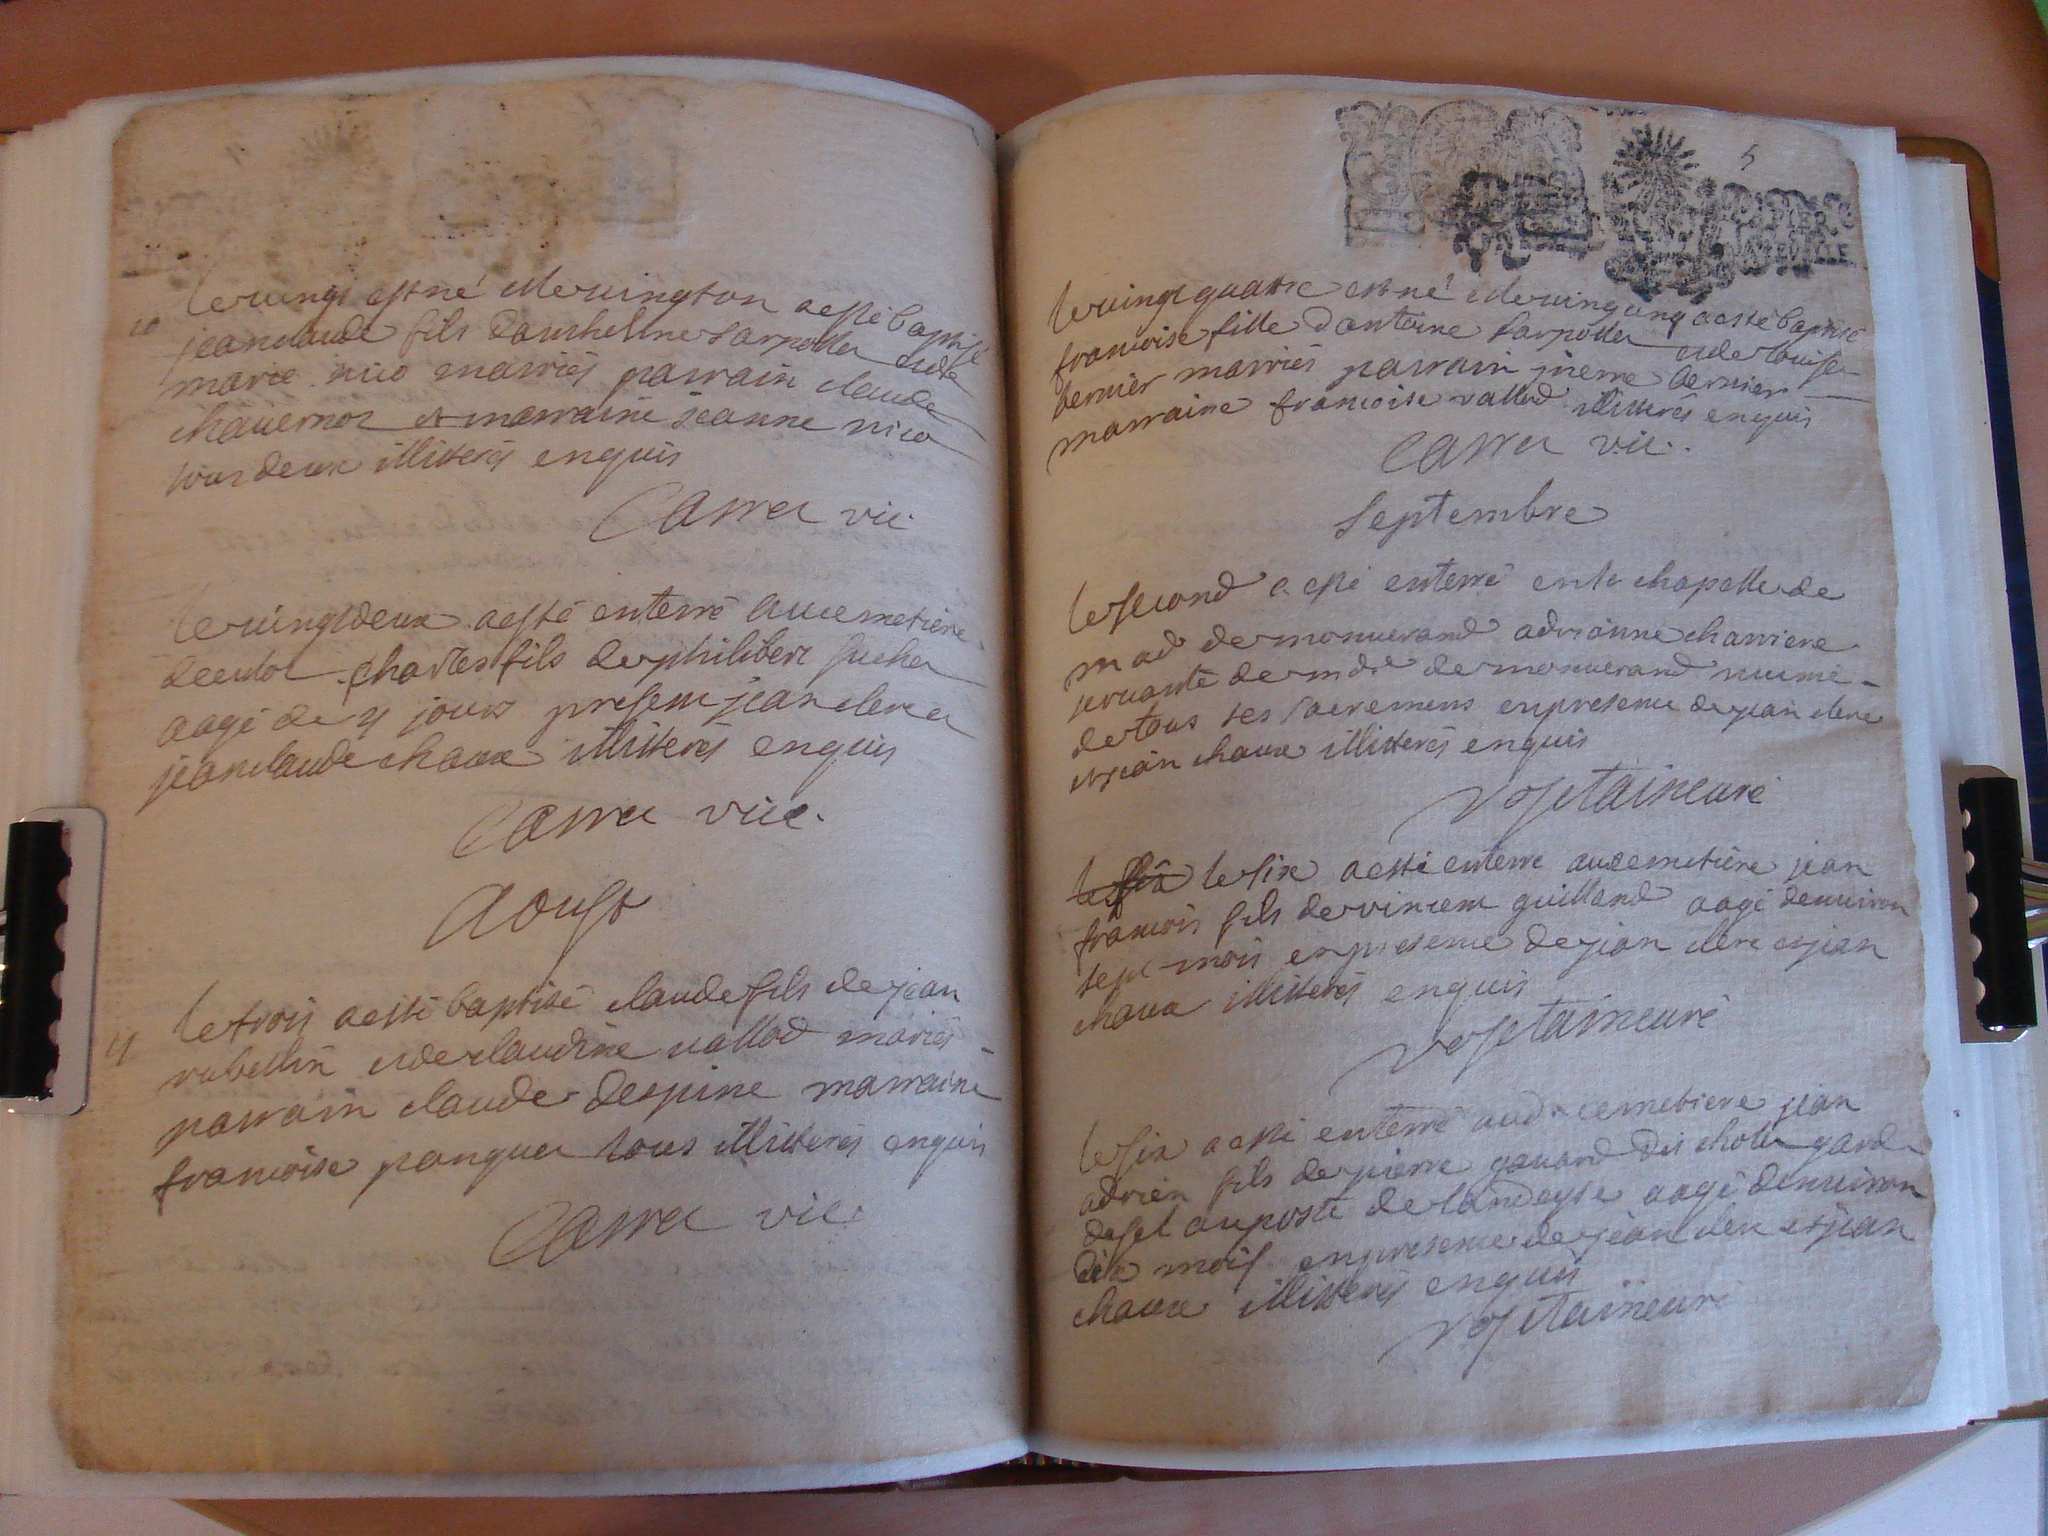 le vingt est né et le vingt un a esté baptisé
jean claude fils danthelme Sarpollet et de
marie nico mariés parrain claude
chavernoz et marraine jeanne nico
tous deux illitterés enquis
Carret vic.
le vingt deux a esté enterré au cemetiere
charles fils de philibert
aagé de 4 jours present jean clerc et
jean claude chaux illitterés enquis
Carret vice.
Aoust
le trois a esté baptisé claude fils de jean
rubellin et de claudine vallod mariés
parrain claude despine marraine
francoise panquet tous illitterés enquis
Carret vic.
5
le vingt quatre est né et le vingt cinq a esté baptisé
francoise fille dantoine Sarpollet et de louise
bernier marriés parrain pierre bernier
marraine francoise vallod illitterés enquis
Carret vic.
Septembre
le second a esté enterré en la chapelle de
mad de monverand adrianne charriere
servante de md.e de monverand munie
de tous ses sacremens en presence de jean clerc
et jean chaux illitterés enquis
vosetaincuré
le six a esté enterré au cemetiere jean
francois fils de vincent guilland aagé denviron
sept mois en presence de jean clerc et jean
chaux illitterés enquis
vosetaincuré
le six a esté enterré aud. cemetiere jean
adrien fils de pierre gavard dit chollet garde
de sel au poste de landeyse aagé denviron
dix mois en presence de jean clerc et jean
chaux illitterés enquis
vosetaincuré